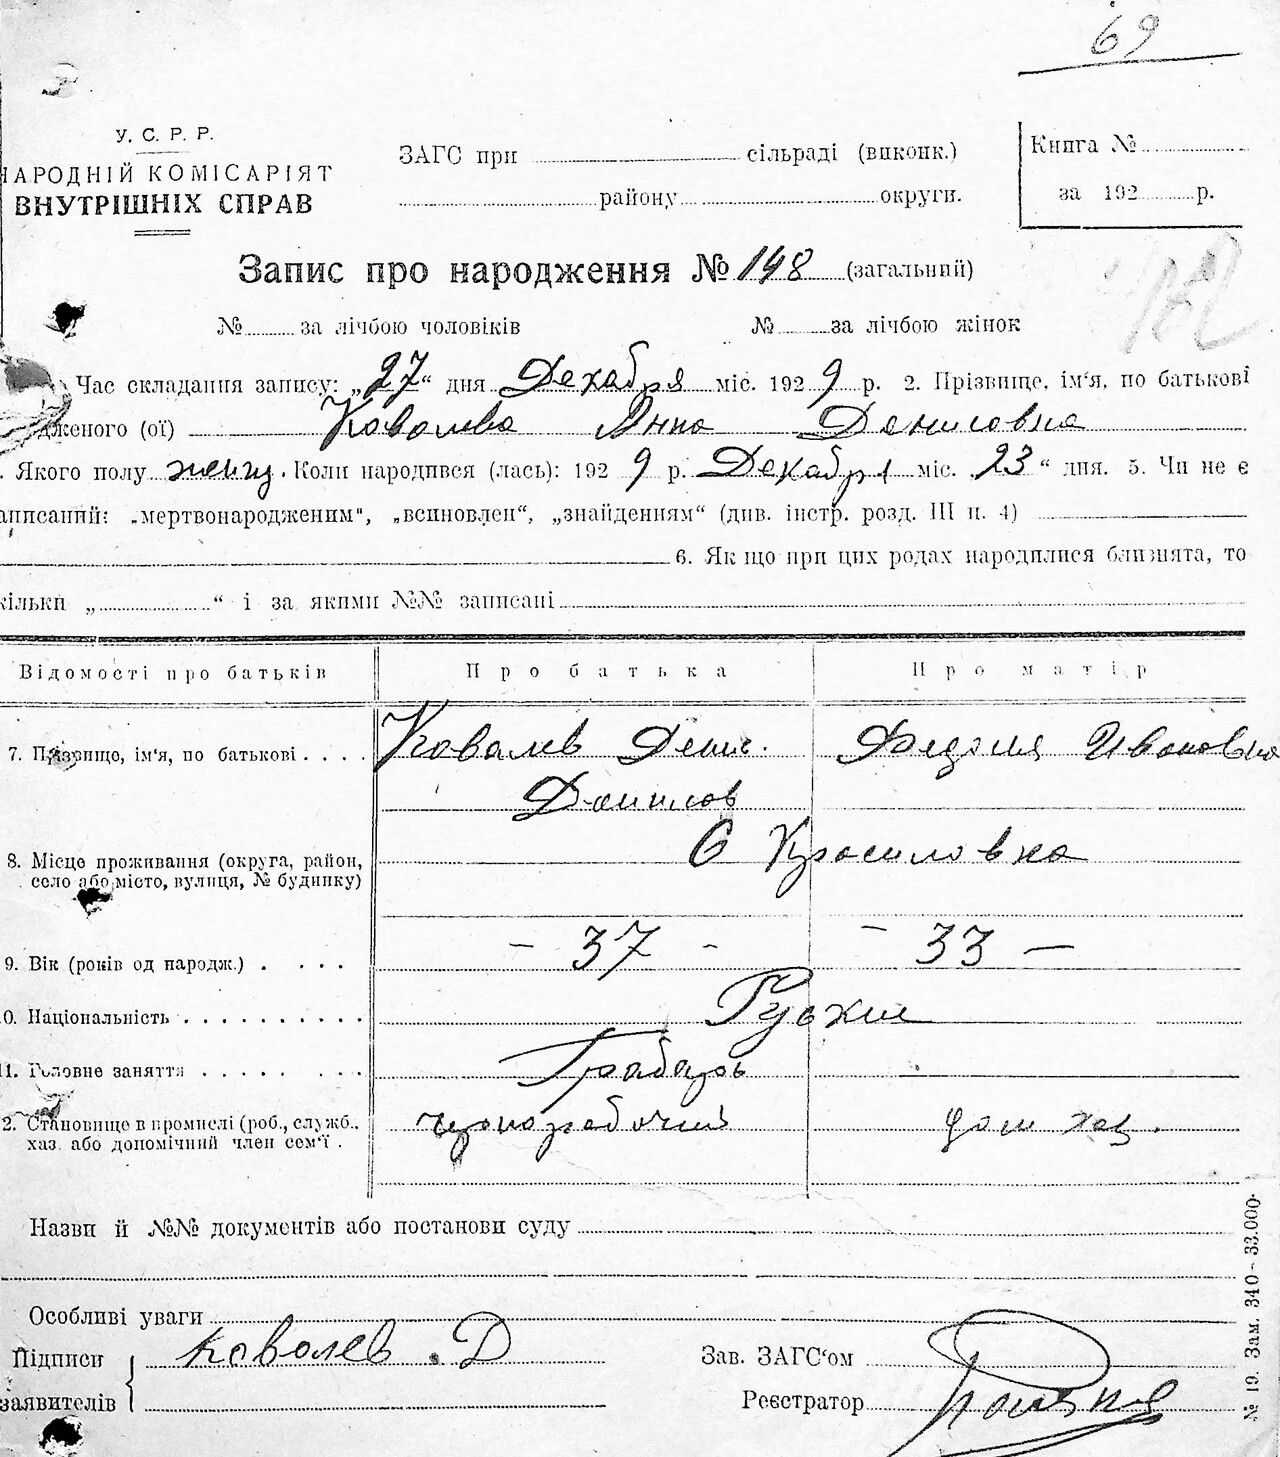 69
У. С. Р. Р.
НАРОДНІЙ КОМІСАРІЯТ
ВНУТРІШНІХ СПРАВ
ЗАГС при сільраді (виконк.)
району округи.
Книга №
за 192 р.
Запис про народження № 148 (загальний)
№ за лічбою чоловіків № за лічбою жінок
Час складання запису: „27“ дня Декабря міс. 1929 р. 2. Прізвище, ім‘я, по батькові
дженого (ої) Ковалева Анна Денисовна
. Якого полу женщ. Коли народився (лась): 1929 р. Декабря міс. 23“ дня. 5. Чи не є
аписаний: „мертвонародженим“, „всиновлен“, „знайденням“ (див. інстр. розд. III п. 4)
6. Як що при цих родах народилися близнята, то
кільки „ “ і за якими №№ записані
Відомості про батьків Про батька Про матір
7. Прізвище, ім‘я, по батькові Ковалев Денис. Ивановна
Данилов
8. Місце проживання (округа, район, С Красиловка
село або місто, вулиця, № будинку)
9. Вік (років од народж.) - 37 - - 33 -
0. Національність Руские
11. Головне заняття Грабарь
2. Становище в промислі (роб., служб., чернорабочий дом хоз.
хаз. або допомічний член сем‘ї .
Назви й №№ документів або постанови суду
Особливі уваги
Підписи Ковалев . Д Зав. ЗАГС‘ом
заявителів Реєстратор
№ 19. Зам. 340 - 33.000